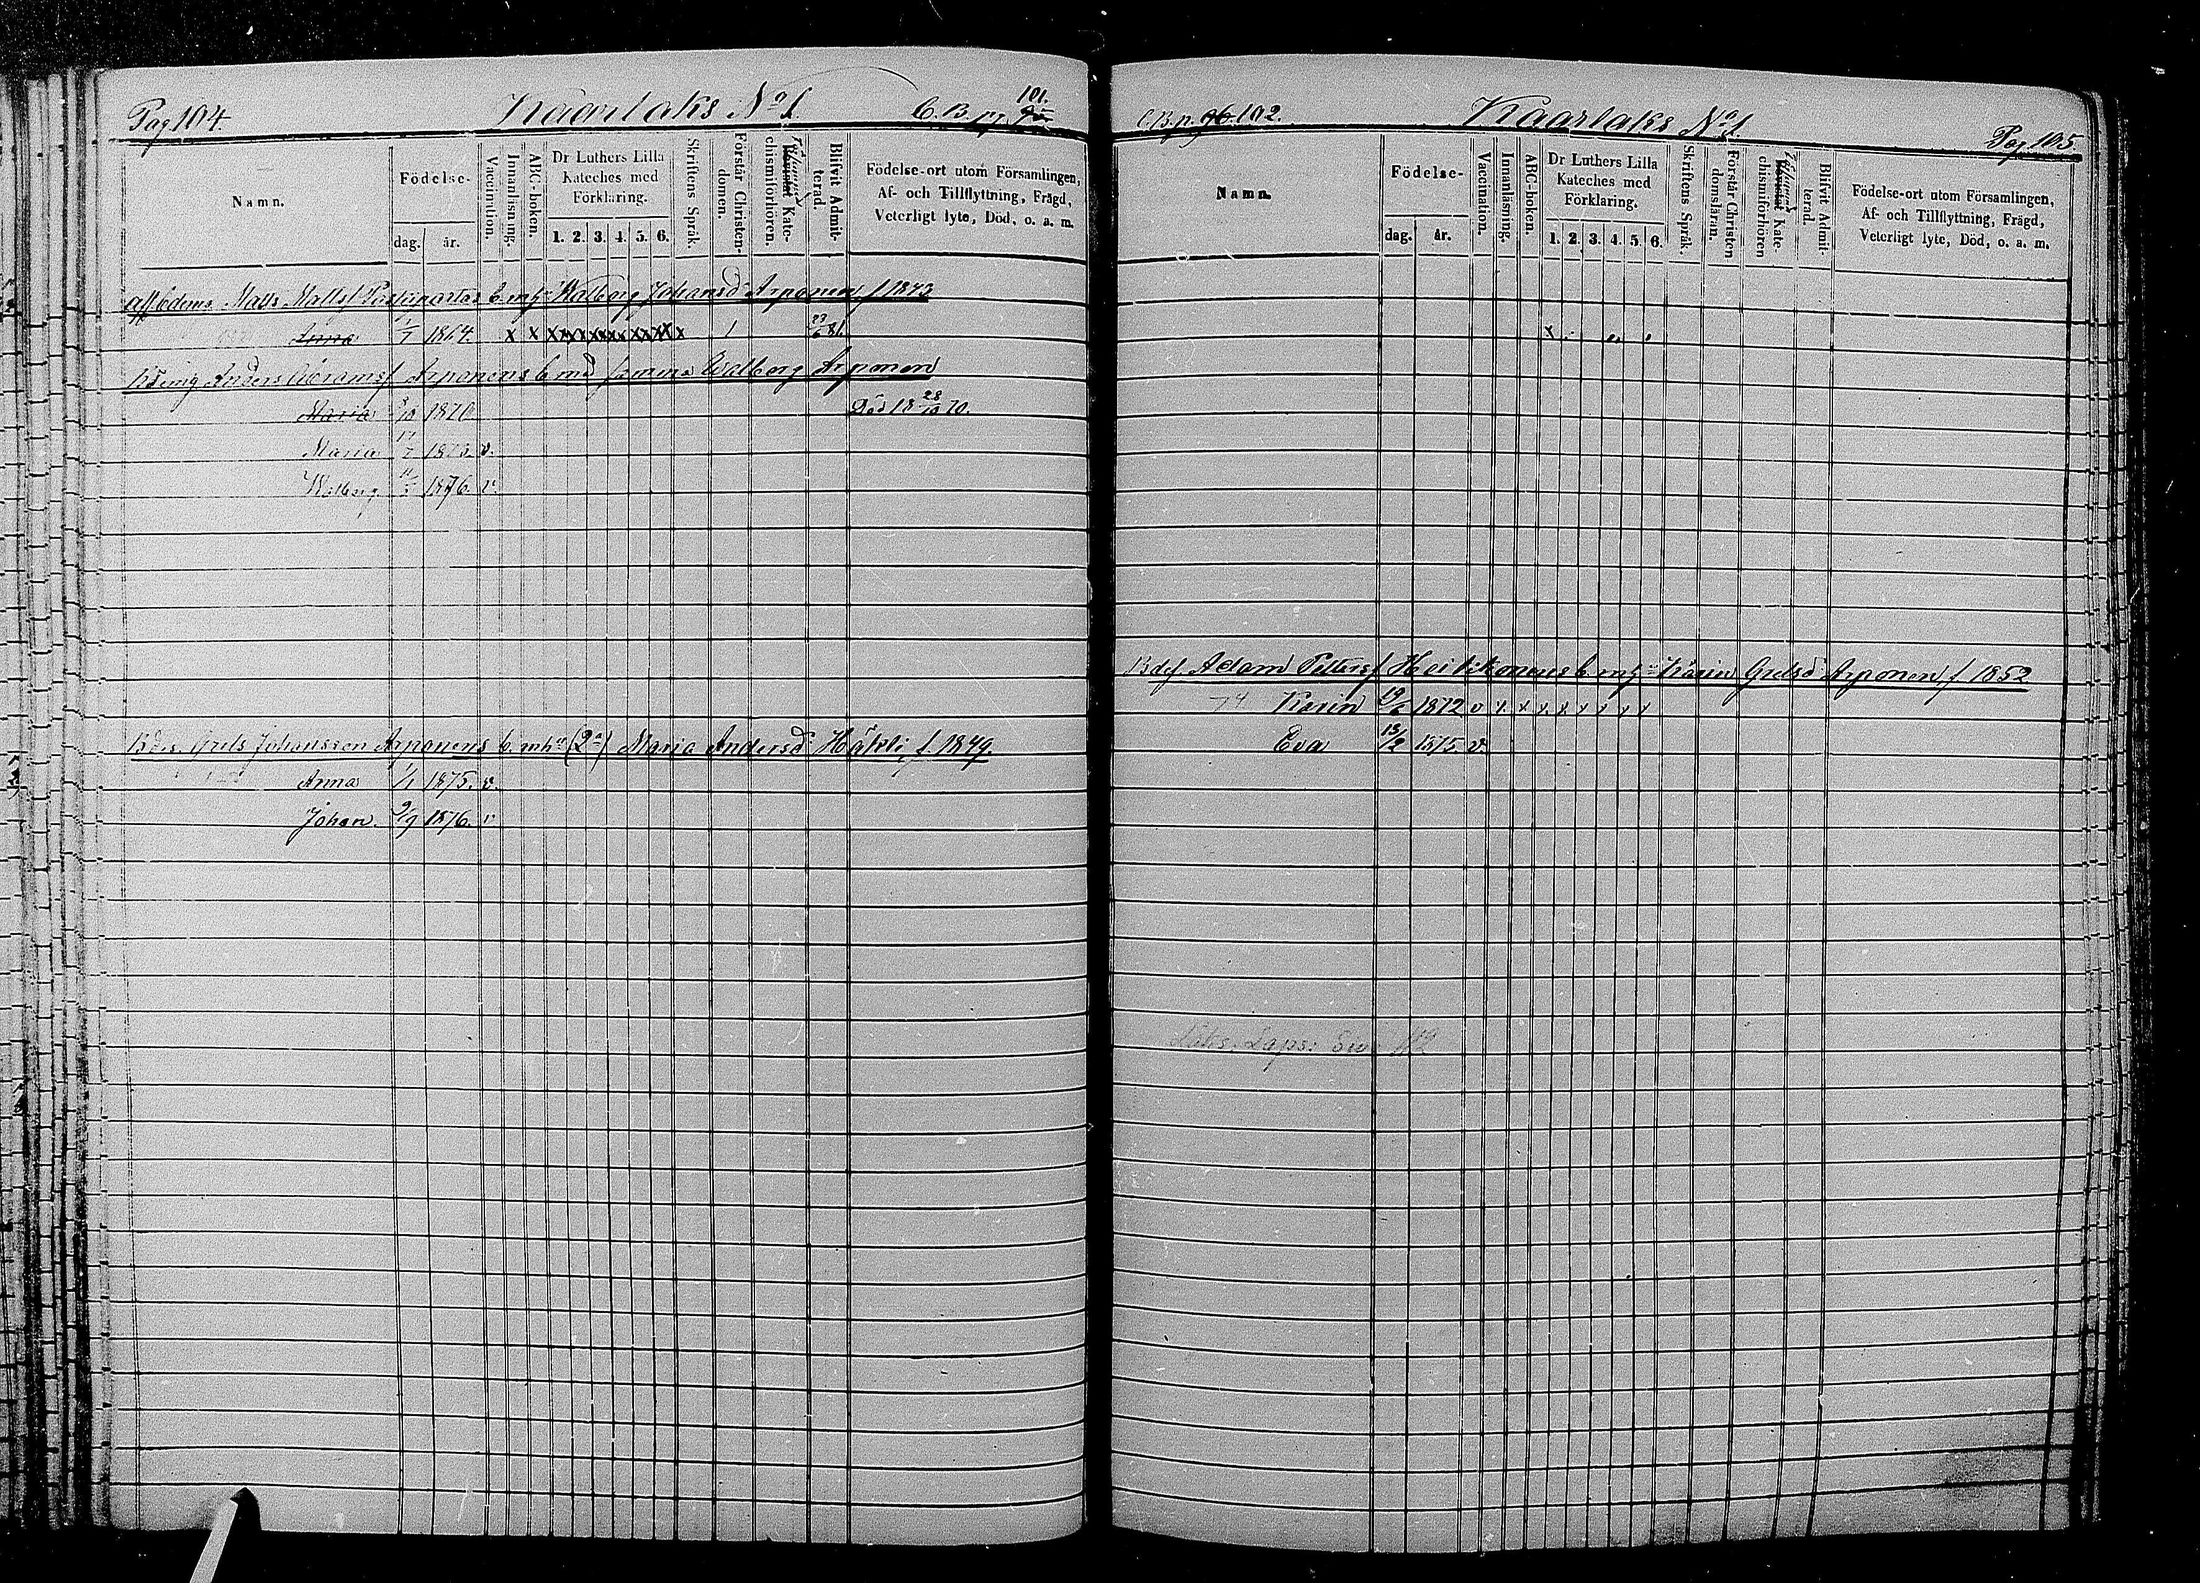 Pag 104. Kaarlaks No 1. C.B. pg 95 101.
Namn. Födelse- dag. år. Vaccination. Innanläsning. ABC-boken. Dr Luthers Lilla Kateches med Förklaring. 1. 2. 3. 4. 5. 6. Skriftens Språk. Förstår Christendomen. Kate-chismiförhören. Blifvit Admitterad. Födelse-ort utom Församlingen, Af- och Tillflyttning, Frägd, Veterligt lyte, Död, o. a. m.
Matts Mattsf b. mh Walborg Johansd Arponen f 1843
Anna 1/7 1864. x x x x x x x x x x x 1 23/6 81.
Anders Arponens b. med samma Walborg Arponen
Maria 3/10 1870 Död 18 28/10 70.
Maria 17/7 1873. v.
Walborg 11/3 1876. v.
Grels Johansson Arponens b. mh (2a) Maria Andersd Häkli, f. 1849.
Anna 1/1 1875. v.
Johan 9/9 1876. v
C.B. p. 96. 102. Kaarlaks No 1. Pag 105.
Namn. Födelse- dag. år. Vaccination. Innanläsning. ABC-boken. Dr Luthers Lilla Kateches med Förklaring. 1. 2. 3. 4. 5. 6. Skriftens Språk. Förstår Christendomsläran. Kate-chismiförhören Blifvit Admitterad. Födelse-ort utom Församlingen, Af- och Tillflyttning, Frägd, Veterligt lyte, Död, o. a. m.
x
Adam Petersf Heikkonens b. mh Karin Grelsd Arponen f 1852
74 Karin 19/6 1872 v x x x x x x x x
Eva 13/2 1875 v.
Laps: Siv: 112